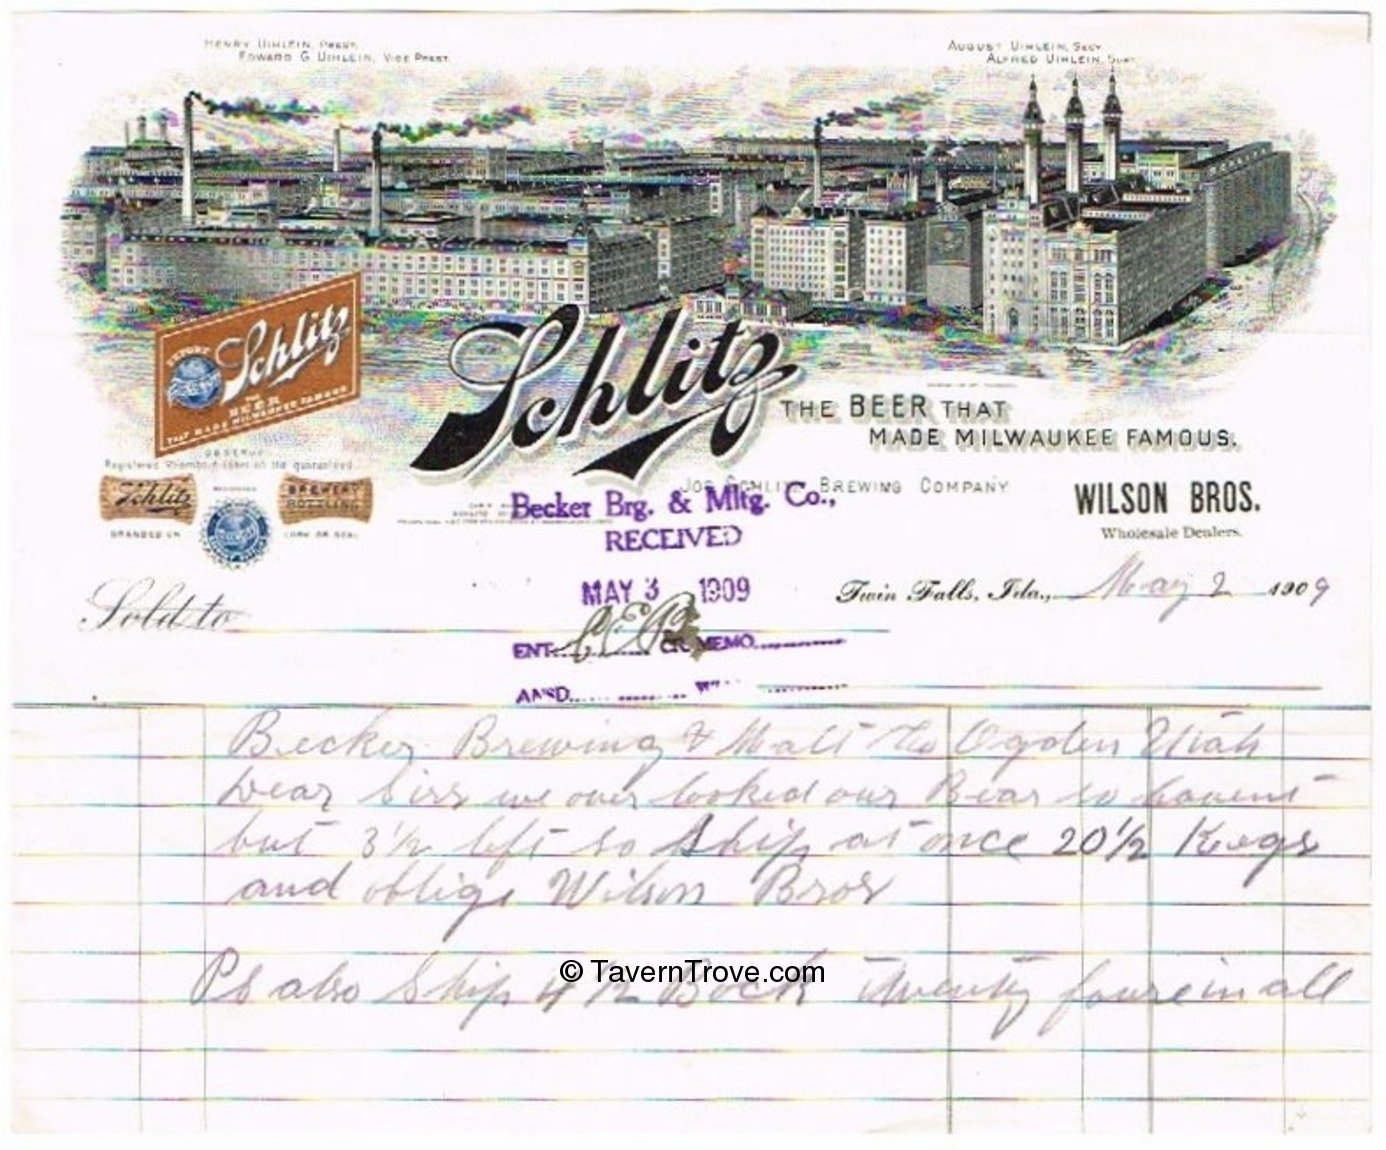 HENRY UIHLEIN, PREST.
EDWARD G. UIHLEIN, VICE PREST.
AUGUST UIHLEIN, SECY.
ALFRED UIHLEIN, SUPT.
EXPORT
Schlitz
THE
BEER
THAT MADE MILWAUKEE FAMOUS
Schlitz
THE BEER THAT
MADE MILWAUKEE FAMOUS.
OBSERVE
Schlitz
BREWERY
BOTTLING
BRANDED ON
CORK OR SEAL
JOS. SCHLITZ BREWING COMPANY
WILSON BROS.
Wholesale Dealers.
Becker Brg. & Mltg. Co.,
RECEIVED
MAY 3 1909
Twin Falls, Ida., May 2 1909
Sold to
ENT. CR. MEMO.
ANSD.
Becker Brewing & Malt Co Ogden Utah
Dear Sirs we over looked our Bear so havent
but 3 1/2 left so ship at once 20 1/2 Kegs
and oblige Wilson Bros
Ps also Ship 4 1/2 Bock twenty foure in all
© TavernTrove.com